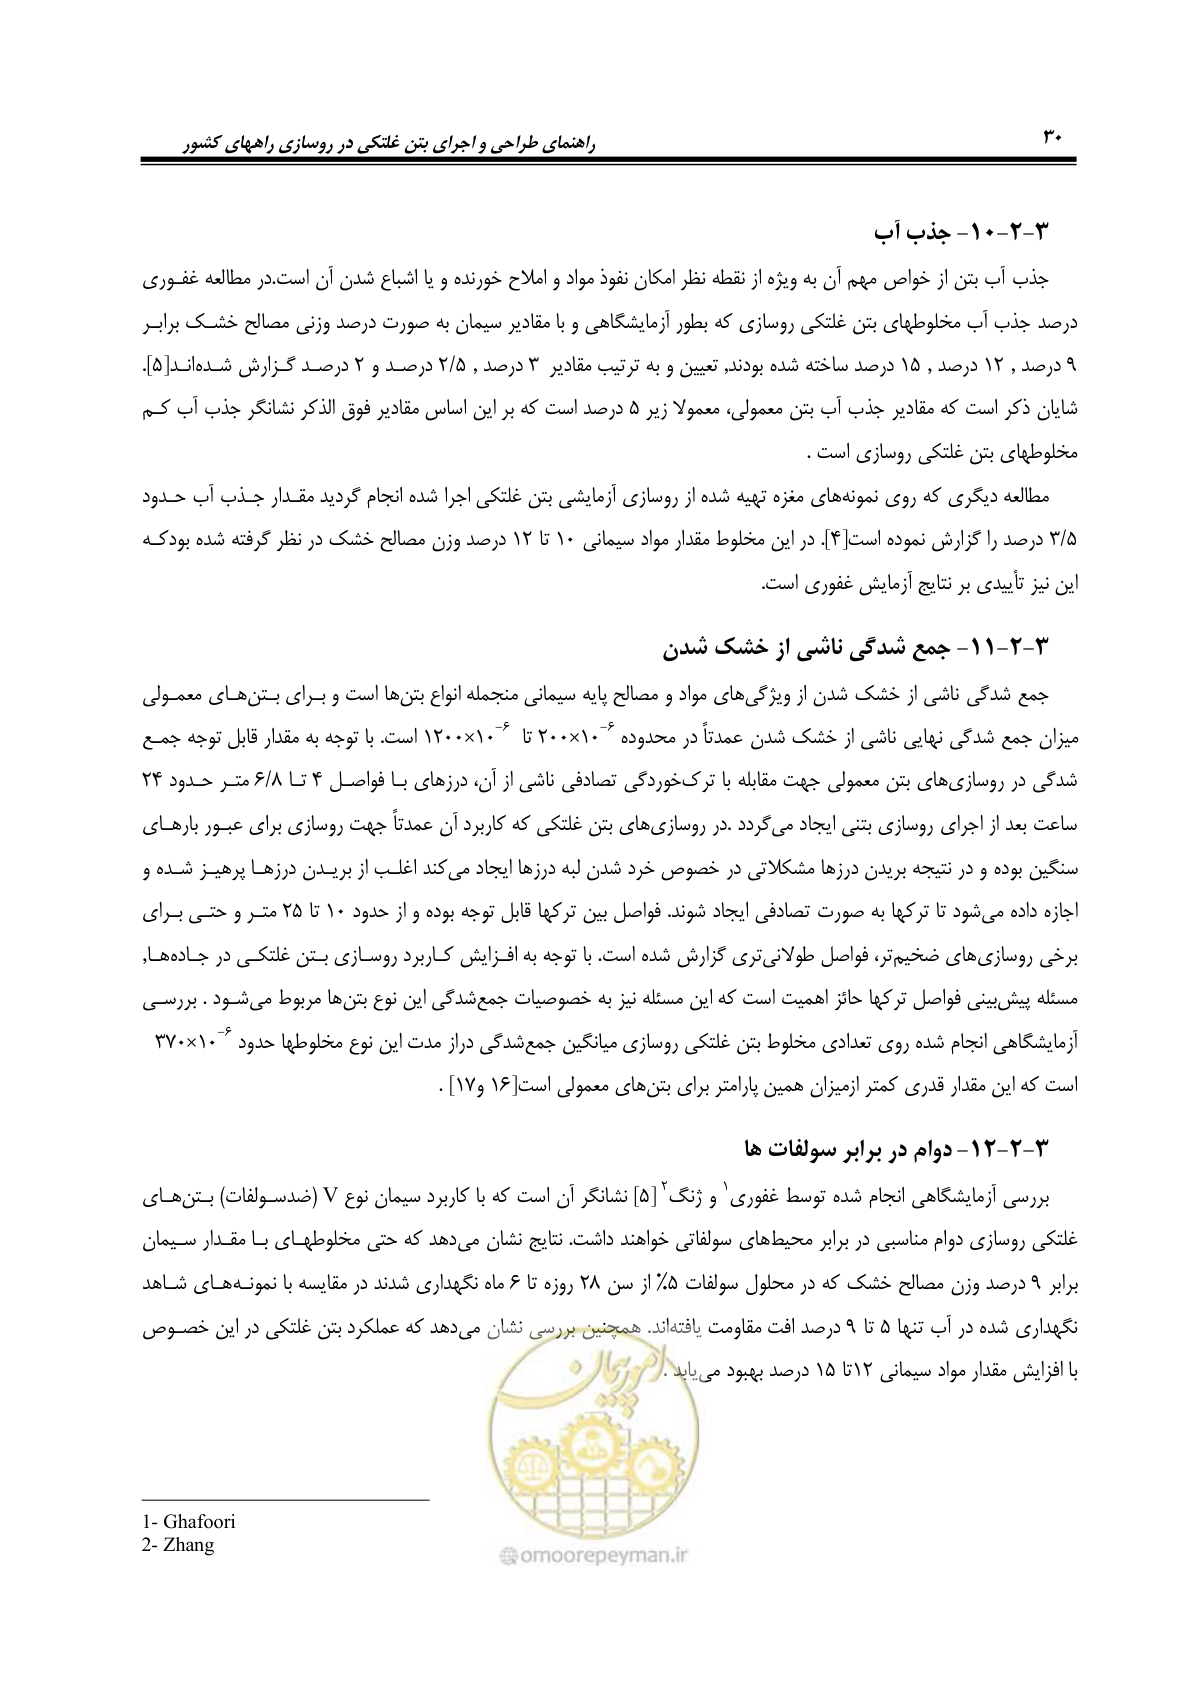 ۳۰
راهنمای طراحی و اجرای بتن غلتکی در روسازی راههای کشور
۳-۲-۱۰- جذب آب
جذب آب بتن از خواص مهم آن به ویژه از نقطه نظر امکان نفوذ مواد و املاح خورنده و یا اشباع شدن آن است.در مطالعه غفـوری
درصد جذب آب مخلوطهای بتن غلتکی روسازی که بطور آزمایشگاهی و با مقادیر سیمان به صورت درصد وزنی مصالح خشـک برابـر
۹ درصد , ۱۲ درصد , ۱۵ درصد ساخته شده بودند, تعیین و به ترتیب مقادیر ۳ درصد , ۲/۵ درصـد و ۲ درصـد گـزارش شـده‌انـد[۵].
شایان ذکر است که مقادیر جذب آب بتن معمولی، معمولا زیر ۵ درصد است که بر این اساس مقادیر فوق الذکر نشانگر جذب آب کـم
مخلوطهای بتن غلتکی روسازی است .
مطالعه دیگری که روی نمونه‌های مغزه تهیه شده از روسازی آزمایشی بتن غلتکی اجرا شده انجام گردید مقـدار جـذب آب حـدود
۳/۵ درصد را گزارش نموده است[۴]. در این مخلوط مقدار مواد سیمانی ۱۰ تا ۱۲ درصد وزن مصالح خشک در نظر گرفته شده بودکـه
این نیز تأییدی بر نتایج آزمایش غفوری است.
۳-۲-۱۱- جمع شدگی ناشی از خشک شدن
جمع شدگی ناشی از خشک شدن از ویژگی‌های مواد و مصالح پایه سیمانی منجمله انواع بتن‌ها است و بـرای بـتن‌هـای معمـولی
میزان جمع شدگی نهایی ناشی از خشک شدن عمدتاً در محدوده ۲۰۰×۱۰⁻⁶ تا ۱۲۰۰×۱۰⁻⁶ است. با توجه به مقدار قابل توجه جمـع
شدگی در روسازی‌های بتن معمولی جهت مقابله با ترک‌خوردگی تصادفی ناشی از آن، درزهای بـا فواصـل ۴ تـا ۶/۸ متـر حـدود ۲۴
ساعت بعد از اجرای روسازی بتنی ایجاد می‌گردد .در روسازی‌های بتن غلتکی که کاربرد آن عمدتاً جهت روسازی برای عبـور بارهـای
سنگین بوده و در نتیجه بریدن درزها مشکلاتی در خصوص خرد شدن لبه درزها ایجاد می‌کند اغلـب از بریـدن درزهـا پرهیـز شـده و
اجازه داده می‌شود تا ترکها به صورت تصادفی ایجاد شوند. فواصل بین ترکها قابل توجه بوده و از حدود ۱۰ تا ۲۵ متـر و حتـی بـرای
برخی روسازی‌های ضخیم‌تر، فواصل طولانی‌تری گزارش شده است. با توجه به افـزایش کـاربرد روسـازی بـتن غلتکـی در جـاده‌هـا,
مسئله پیش‌بینی فواصل ترکها حائز اهمیت است که این مسئله نیز به خصوصیات جمع‌شدگی این نوع بتن‌ها مربوط می‌شـود . بررسـی
آزمایشگاهی انجام شده روی تعدادی مخلوط بتن غلتکی روسازی میانگین جمع‌شدگی دراز مدت این نوع مخلوطها حدود ۳۷۰×۱۰⁻⁶
است که این مقدار قدری کمتر ازمیزان همین پارامتر برای بتن‌های معمولی است[۱۶ و۱۷] .
۳-۲-۱۲- دوام در برابر سولفات ها
بررسی آزمایشگاهی انجام شده توسط غفوری¹ و ژنگ² [۵] نشانگر آن است که با کاربرد سیمان نوع V (ضدسـولفات) بـتن‌هـای
غلتکی روسازی دوام مناسبی در برابر محیط‌های سولفاتی خواهند داشت. نتایج نشان می‌دهد که حتی مخلوطهـای بـا مقـدار سـیمان
برابر ۹ درصد وزن مصالح خشک که در محلول سولفات ۵٪ از سن ۲۸ روزه تا ۶ ماه نگهداری شدند در مقایسه با نمونـه‌هـای شـاهد
نگهداری شده در آب تنها ۵ تا ۹ درصد افت مقاومت یافته‌اند. همچنین بررسی نشان می‌دهد که عملکرد بتن غلتکی در این خصـوص
با افزایش مقدار مواد سیمانی ۱۲تا ۱۵ درصد بهبود می‌یابد .
امور پیمان
1- Ghafoori
2- Zhang
@omoorepeyman.ir